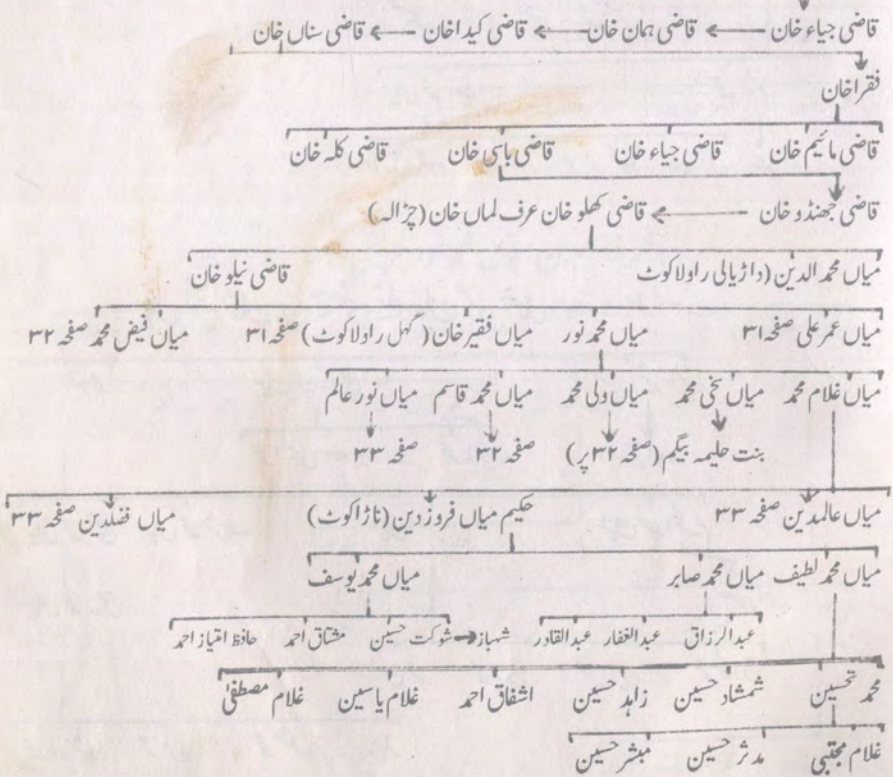 قاضی جیاء خان ← قاضی ہمان خان ← قاضی کیدا خان ← قاضی سناں خان
فقرا خان
قاضی مائیم خان قاضی جیاء خان قاضی باسی خان قاضی کلہ خان
قاضی جھنڈو خان ← قاضی کھلو خان عرف لماں خان (چڑالہ)
میاں محمد الدین (داڑیالی راولاکوٹ قاضی نیلو خان
میاں عمر علی صفحہ ۳۱ میاں محمد نور میاں فقیر خان (گہل راولاکوٹ) صفحہ ۳۱ میاں فیض محمد صفحہ ۳۲
میاں غلام محمد میاں سخی محمد میاں ولی محمد میاں محمد قاسم میاں نور عالم
بنت حلیمہ بیگم (صفحہ ۳۲ پر) صفحہ ۳۲ صفحہ ۳۳
میاں عالمدین صفحہ ۳۳ حکیم میاں فروزدین (ناڑاکوٹ) میاں فضلدین صفحہ ۳۳
میاں محمد لطیف میاں محمد صابر میاں محمد یوسف
عبدالرزاق عبدالغفار عبدالقادر شہباز ← شوکت حسین مشتاق احمد حافظ امتیاز احمد
محمد تحسین شمشاد حسین زاہد حسین اشفاق احمد غلام یاسین غلام مصطفیٰ
غلام مجتبیٰ مدثر حسین مبشر حسین